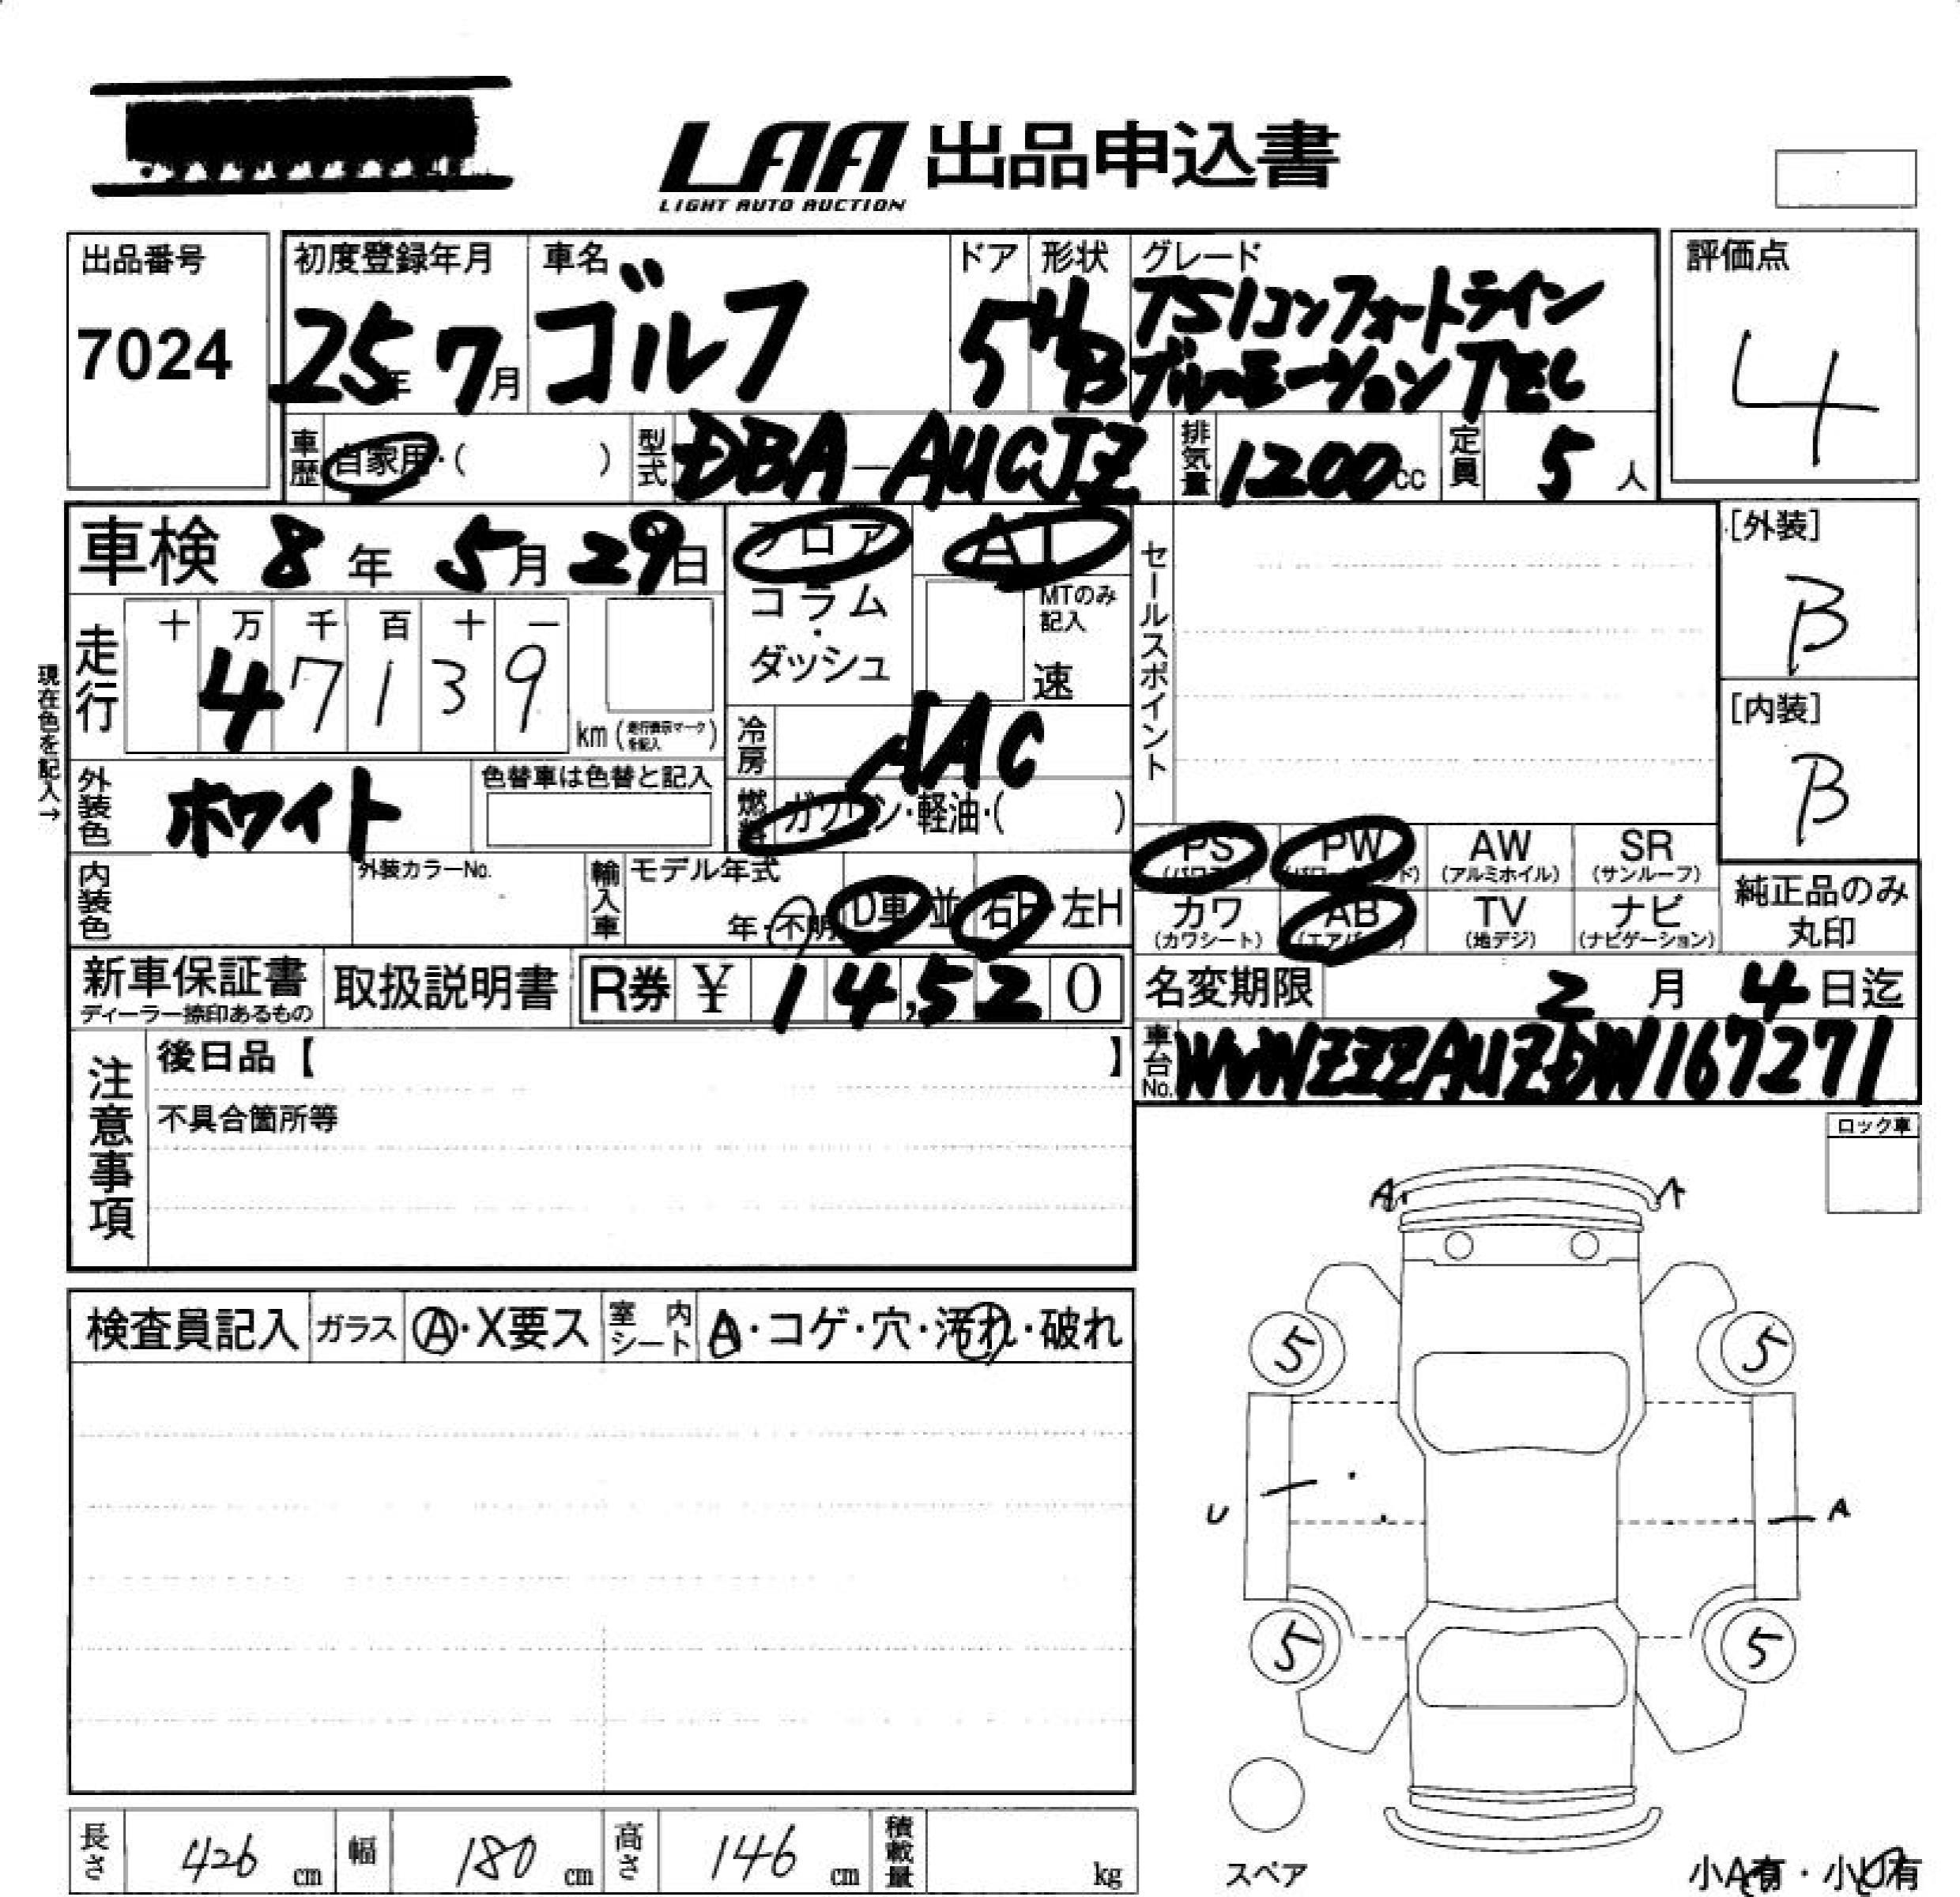 LAA 出品申込書
LIGHT AUTO AUCTION
出品番号
7024
初度登録年月
25年 7月
車名
ゴルフ
ドア
5
形状
H/B
グレード
TSIコンフォートライン
ブルーモーションTEC
評価点
4
車歴 自家用・( )
型式 DBA-AUCJZ
排気量 1200cc
定員 5人
車検 8年 5月 29日
現在色を記入→
走行 十 万 千 百 十 一
4 7 1 3 9 km (走行表示マークを記入)
フロア
コラム
・
ダッシュ
AT
MTのみ
記入
速
冷房 AAC
燃料 ガソリン・軽油・( )
外装色 ホワイト
色替車は色替と記入
内装色
外装カラーNo.
輸入車 モデル年式
年・不明 D車・並 右H・左H
セールスポイント
[外装]
B
[内装]
B
PS (パワステ)
PW (パワーウィンド)
AW (アルミホイル)
SR (サンルーフ)
カワ (カワシート)
AB (エアバッグ)
TV (地デジ)
ナビ (ナビゲーション)
純正品のみ
丸印
新車保証書
ディーラー捺印あるもの
取扱説明書
R券 ¥ 14,520
名変期限 2月 4日迄
車台No. WVWZZZAUZDW167271
注意事項
後日品【 】
不具合箇所等
ロック車
検査員記入 ガラス A・X要ス
室内シート A・コゲ・穴・汚れ・破れ
A A
5 5
U A
5 5
スペア
小A有・小U有
長さ 426 cm
幅 180 cm
高さ 146 cm
積載量 kg